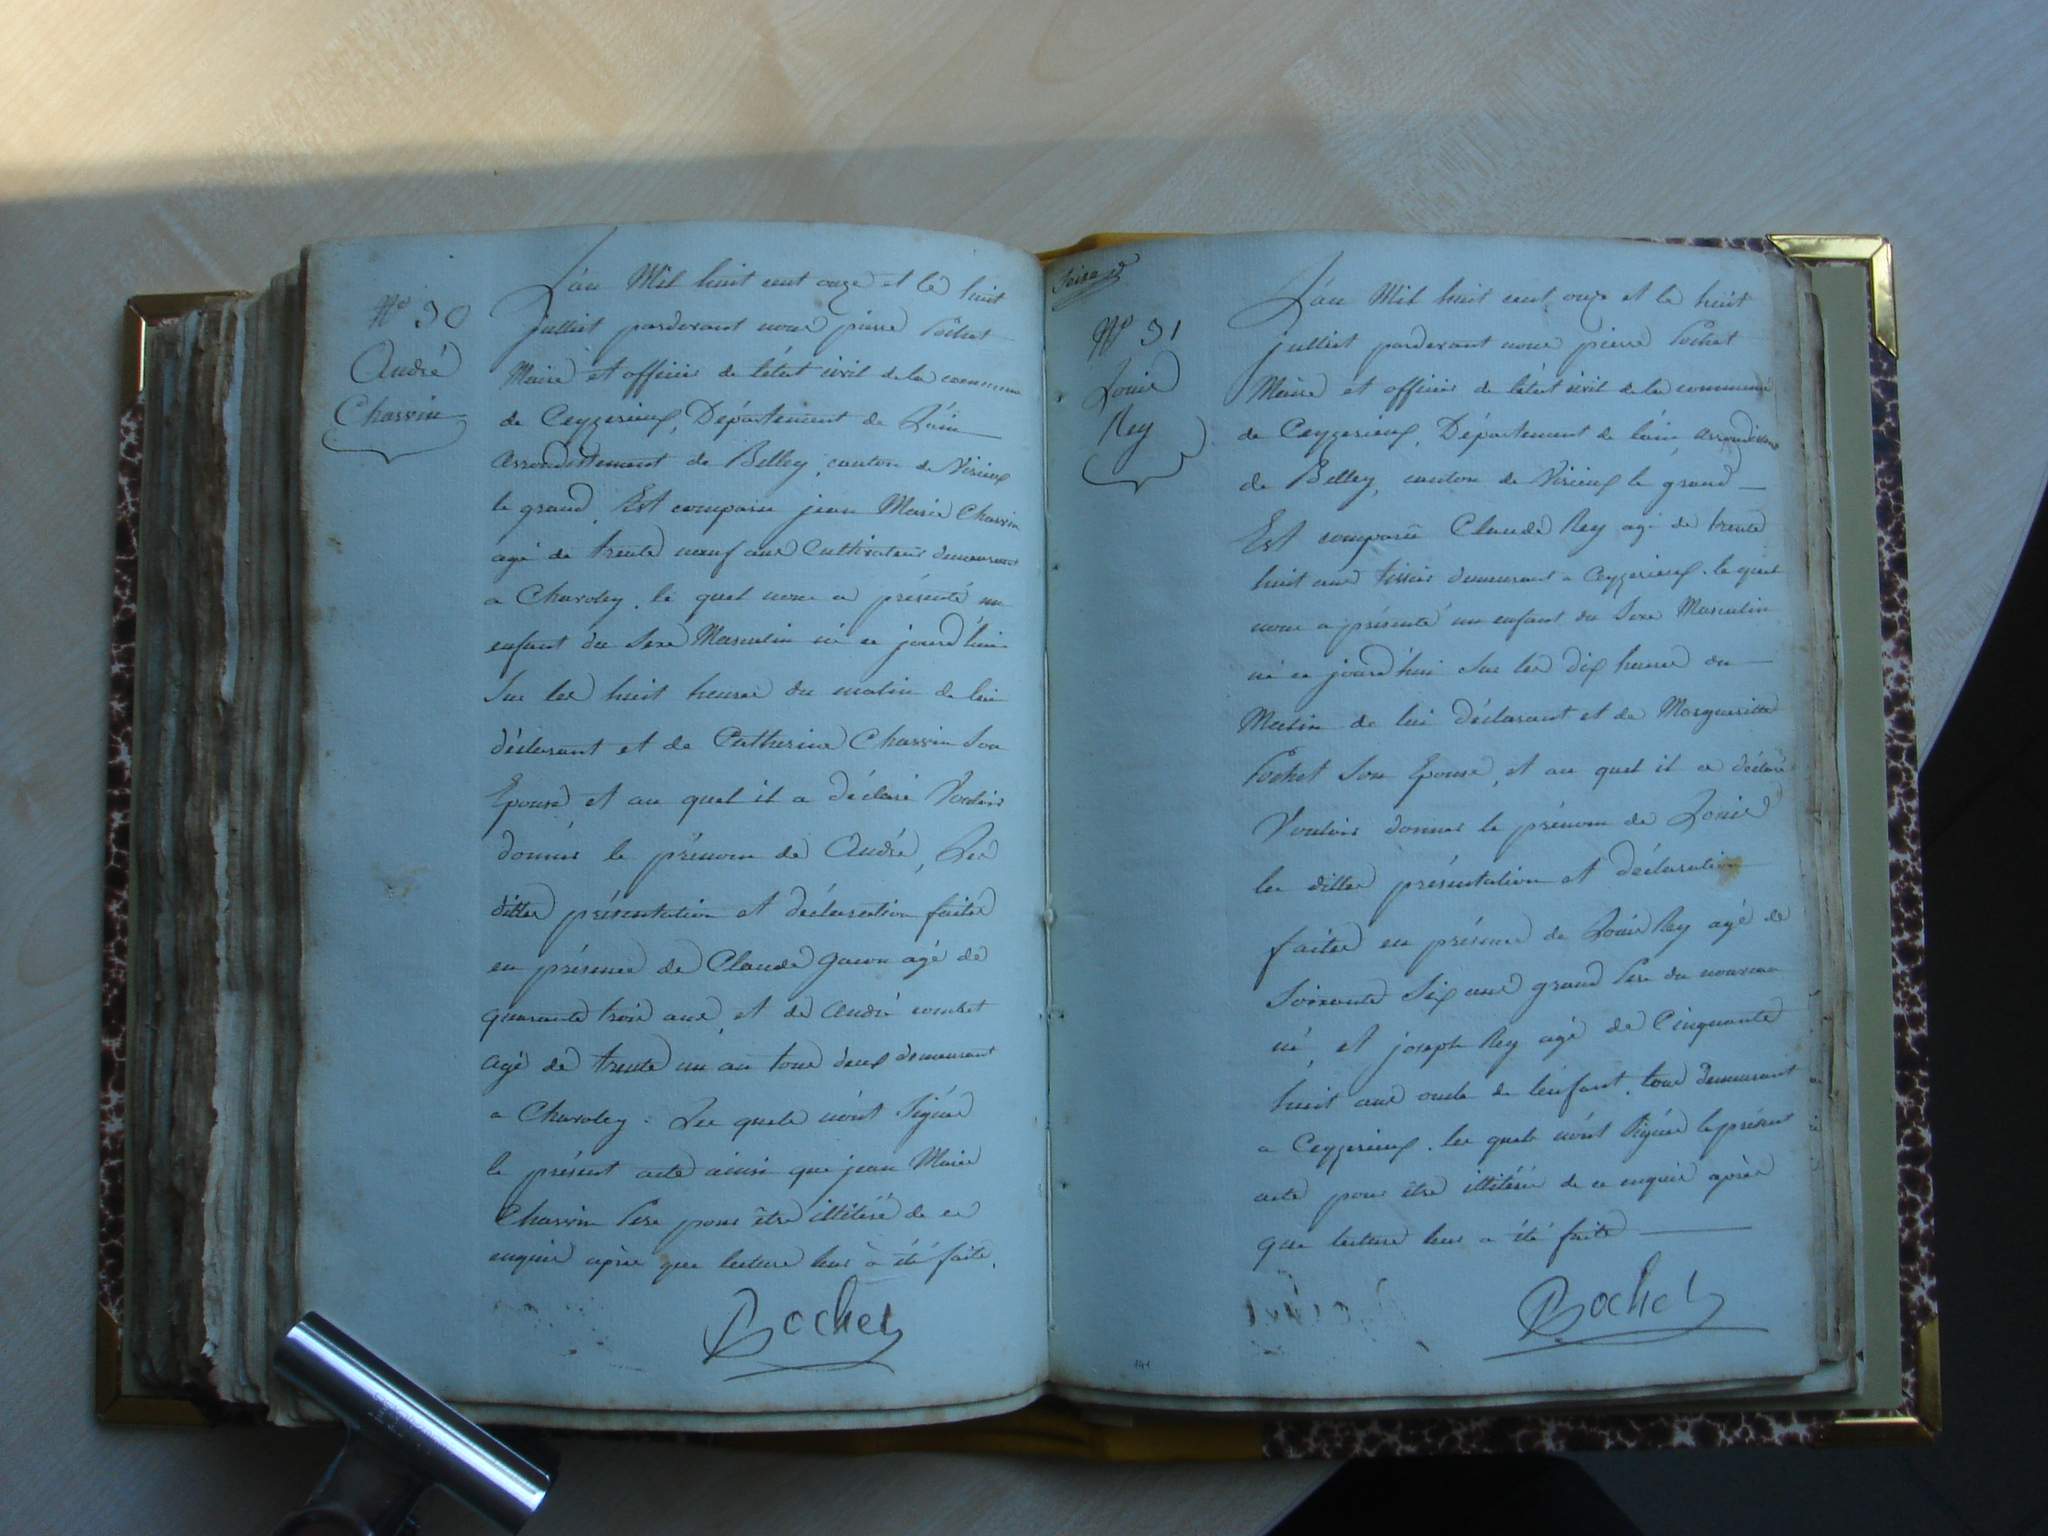 N° 30
André
Chassin
L'an Mil huit cent onze et le huit
julliet pardevant nous pierre Pochet
Maire et officier de l'état civil de la commune
de Ceyzerieux, Département de L'ain
arrondissement de Belley, canton de Virieux
le grand, Est comparu jean Marie Chassin
agé de trente nœuf ans Cultivateur demeurant
a Chavoley, le quel nous a présenté un
enfant du Sexe Masculin né ce jourd'hui
Sur les huit heures du matin de lui
déclarant et de Catherine Chassin Son
Epouse, et au quel il a déclaré Vouloir
donner le prénom de André, Les
dittes présentation et déclaration faites
en présence de Claude agé de
quarante trois ans, et de André
agé de trente un an tous deux demeurant
a Chavoley : Les quels n'ont Signés
le présent acte ainsi que jean Marie
Chassin Pere pour être illitéré de ce
enquis après que lecture leur à été faite.
Pochet
Seize
N° 31
Louis
Rey
L'an Mil huit cent onze et le huit
julliet pardevant nous pierre Pochet
Maire et officier de l'état civil de la commune
de Ceyzerieux, Département de l'ain
de Belley, canton de Virieux le grand
Est comparu Claude Rey agé de trente
huit ans tissier demeurant a Ceyzerieux. le quel
nous a présenté un enfant du Sexe Masculin
né ce jourd'hui Sur les dix heures du
Matin de lui déclarant et de Margueritte
Pochet Son Epouse, et au quel il a déclaré
Vouloir donner le prénom de Louis
les dittes présentation et déclaration
faites en présence de Louis Rey agé de
Soixante Six ans grand Pere du nouveau
né, et joseph Rey agé de Cinquante
huit ans oncle de l'enfant. tous demeurant
a Ceyzerieux. les quels n'ont Signés le présent
acte pour être illitérés de ce enquis après
que lecture leur a été faite
Pochet
141